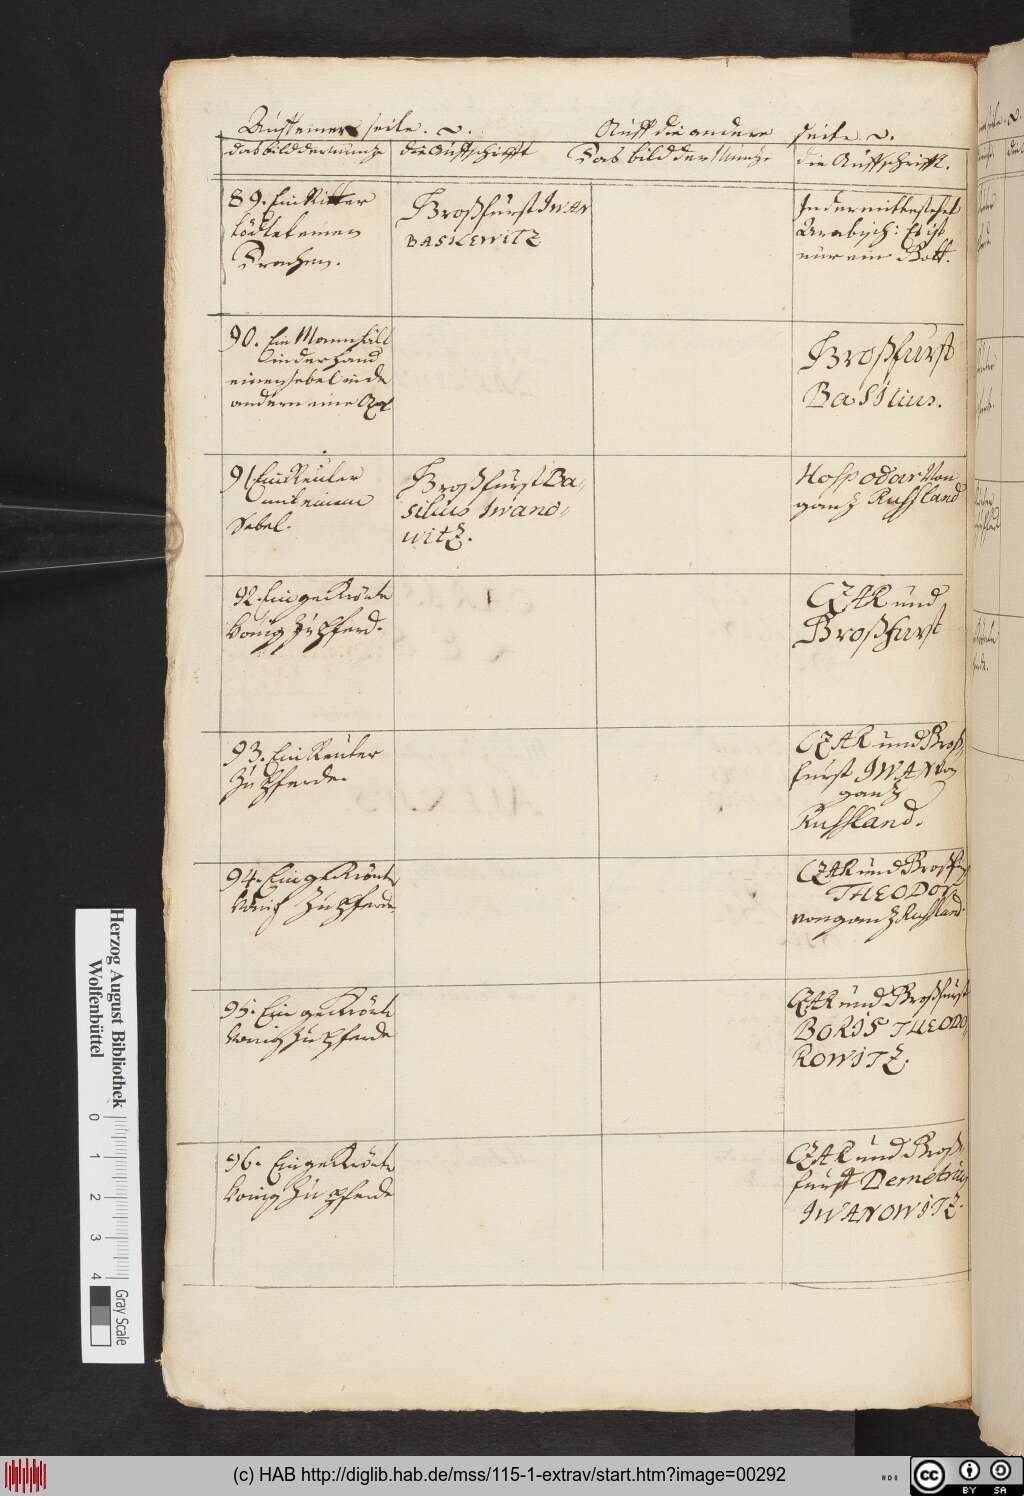 Auff einer seite.
Auff die andere seite.
das bild der munze
die Auffschrifft
Das bild der Munze
die Auffschrifft.
89. Ein Ritter
tödtet einen
Drachen.
Großfürst IWAN
BASILEWITZ
Arabisch: Es ist
nur ein Gott.
90. Ein Mann hält
in der hand
einen sebel in de
andern eine
Großfurst
BaSilius.
91. Ein Reuter
mit einem
Sebel.
Großfurst Ba-
silius Iwano-
witz.
Hospodar Von
ganz Russland
92. Ein gekrönte
König zu Pferd.
CZAR und
Großfurst
93. Ein Reuter
zu Pferde.
CZAR und Groß-
fürst IWAN von
ganz
Russland.
94. Ein gekrönte
König zu Pferde
CZAR und Großfürst
THEODOR
von ganz Russland.
95. Ein gekrönte
König zu Pferde
CZAR und Großfürst
BORIS THEODO-
ROWITZ.
96. Ein gekrönte
König zu Pferde
CZAR und Groß-
fürst Demetrius
IWANOWITZ.
Herzog August Bibliothek
Wolfenbüttel
0 1 2 3 4
Gray Scale
(c) HAB http://diglib.hab.de/mss/115-1-extrav/start.htm?image=00292
cc
BY SA